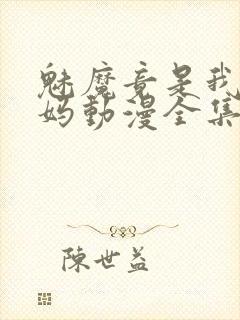 魅魔竟是我
妈動漫全集
陳世益